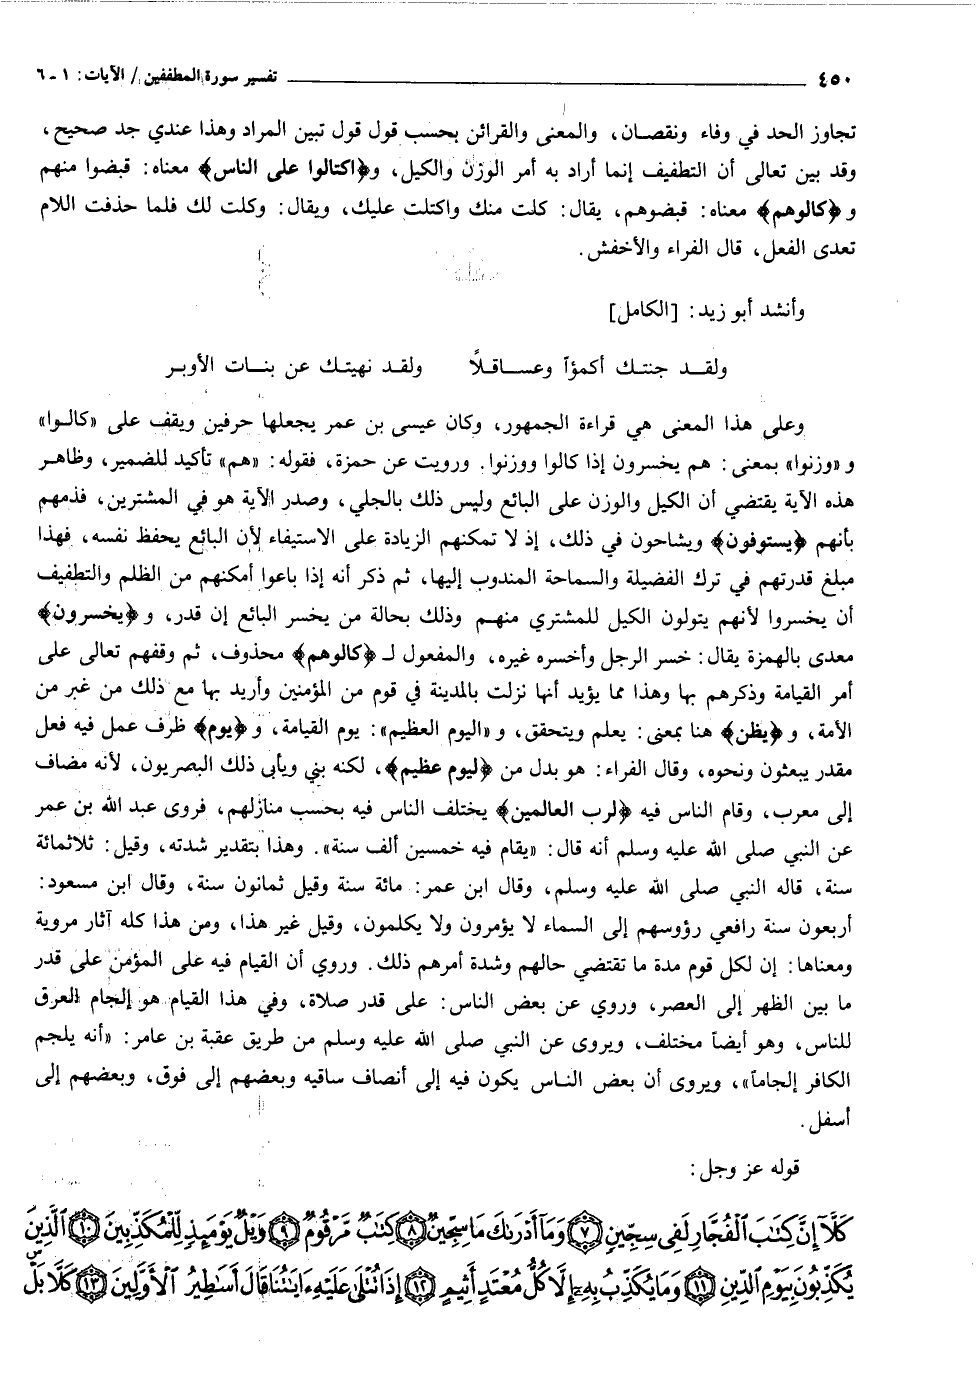 ٤٥٠ تفسير سورة المطففين / الآيات: ١ - ٦
تجاوز الحد في وفاء ونقصان، والمعنى والقرائن بحسب قول قول تبين المراد وهذا عندي جد صحيح،
وقد بين تعالى أن التطفيف إنما أراد به أمر الوزن والكيل، و﴿اكتالوا على الناس﴾ معناه: قبضوا منهم
و﴿كالوهم﴾ معناه: قبضوهم، يقال: كلت منك واكتلت عليك، ويقال: وكلت لك فلما حذفت اللام
تعدى الفعل، قال الفراء والأخفش.
وأنشد أبو زيد: [الكامل]
ولقـد جنتـك أكمؤاً وعسـاقـلاً ولقـد نهيتـك عن بنـات الأوبـر
وعلى هذا المعنى هي قراءة الجمهور، وكان عيسى بن عمر يجعلها حرفين ويقف على «كالـوا»
و «وزنوا» بمعنى: هم يخسرون إذا كالوا ووزنوا. ورويت عن حمزة، فقوله: «هم» تأكيد للضمير، وظاهـر
هذه الآية يقتضي أن الكيل والوزن على البائع وليس ذلك بالجلي، وصدر الآية هو في المشترين، فذمهم
بأنهم ﴿يستوفون﴾ ويشاحون في ذلك، إذ لا تمكنهم الزيادة على الاستيفاء لأن البائع يحفظ نفسه، فهذا
مبلغ قدرتهم في ترك الفضيلة والسماحة المندوب إليها، ثم ذكر أنه إذا باعوا أمكنهم من الظلم والتطفيف
أن يخسروا لأنهم يتولون الكيل للمشتري منهـم وذلك بحالة من يخسر البائع إن قدر، و﴿يخسرون﴾
معدى بالهمزة يقال: خسر الرجل وأخسره غيره، والمفعول لـ ﴿كالوهم﴾ محذوف، ثم وقفهم تعالى على
أمر القيامة وذكرهم بها وهذا مما يؤيد أنها نزلت بالمدينة في قوم من المؤمنين وأريد بها مع ذلك من غبر من
الأمة، و﴿يظن﴾ هنا بمعنى: يعلم ويتحقق، و«اليوم العظيم»: يوم القيامة، و﴿يوم﴾ ظرف عمل فيه فعل
مقدر يبعثون ونحوه، وقال الفراء: هو بدل من ﴿ليوم عظيم﴾، لكنه بني ويأبى ذلك البصريون، لأنه مضاف
إلى معرب، وقام الناس فيه ﴿لرب العالمين﴾ يختلف الناس فيه بحسب منازلهم، فروى عبد الله بن عمر
عن النبي صلى الله عليه وسلم أنه قال: «يقام فيه خمسين ألف سنة». وهذا بتقدير شدته، وقيل: ثلاثمائة
سنة، قاله النبي صلى الله عليه وسلم، وقال ابن عمر: مائة سنة وقيل ثمانون سنة، وقال ابن مسعود:
أربعون سنة رافعي رؤوسهم إلى السماء لا يؤمرون ولا يكلمون، وقيل غير هذا، ومن هذا كله آثار مروية
ومعناها: إن لكل قوم مدة ما تقتضي حالهم وشدة أمرهم ذلك. وروي أن القيام فيه على المؤمن على قدر
ما بين الظهر إلى العصر، وروي عن بعض الناس: على قدر صلاة، وفي هذا القيام هو إلجام العرق
للناس، وهو أيضاً مختلف، ويروى عن النبي صلى الله عليه وسلم من طريق عقبة بن عامر: «أنه يلجم
الكافر إلجاماً»، ويروى أن بعض النـاس يكون فيه إلى أنصاف ساقيه وبعضهم إلى فوق، وبعضهم إلى
أسفل.
قوله عز وجل:
كَلَّآ إِنَّ كِتَٰبَ ٱلْفُجَّارِ لَفِى سِجِّينٍ ﴿٧﴾ وَمَآ أَدْرَىٰكَ مَا سِجِّينٌ ﴿٨﴾ كِتَٰبٌ مَّرْقُومٌ ﴿٩﴾ وَيْلٌ يَوْمَئِذٍ لِّلْمُكَذِّبِينَ ﴿١٠﴾ ٱلَّذِينَ
يُكَذِّبُونَ بِيَوْمِ ٱلدِّينِ ﴿١١﴾ وَمَا يُكَذِّبُ بِهِۦٓ إِلَّا كُلُّ مُعْتَدٍ أَثِيمٍ ﴿١٢﴾ إِذَا تُتْلَىٰ عَلَيْهِ ءَايَٰتُنَا قَالَ أَسَٰطِيرُ ٱلْأَوَّلِينَ ﴿١٣﴾ كَلَّا بَلْ